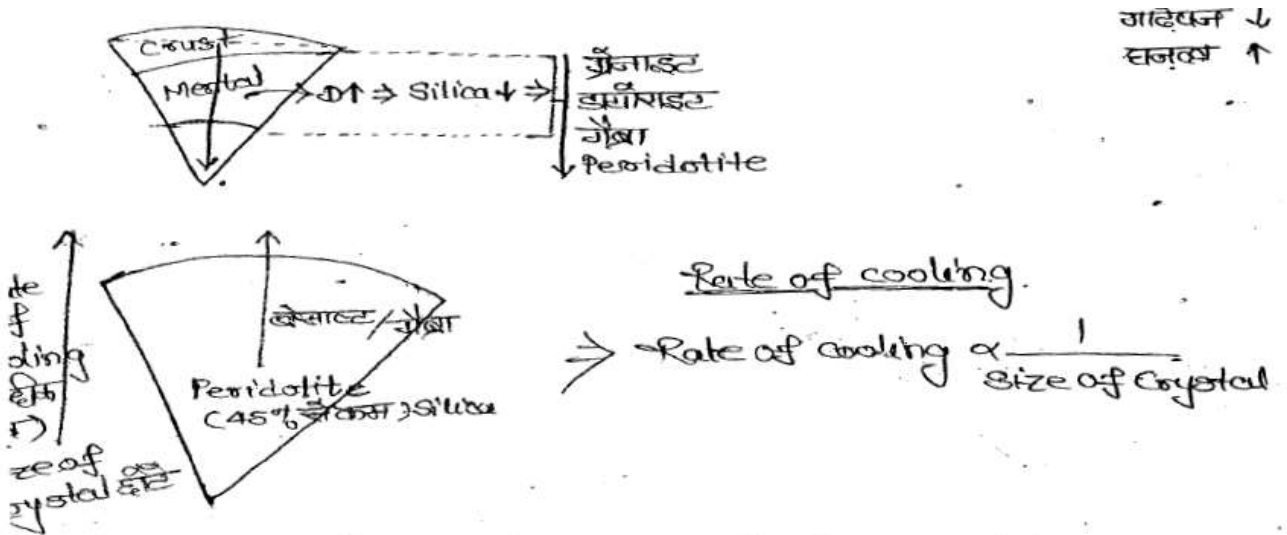 गाढ़ेपन ↓
घनत्व ↑
Crust
Mental → D↑ ⇒ Silica ↓ ⇒
ग्रेनाइट
डायोराइट
गैब्रो
Peridotite
बेसाल्ट/गैब्रो
Peridotite
(45% से कम) Silica
Rate of cooling
⇒ Rate of cooling ∝ 1 / Size of Crystal